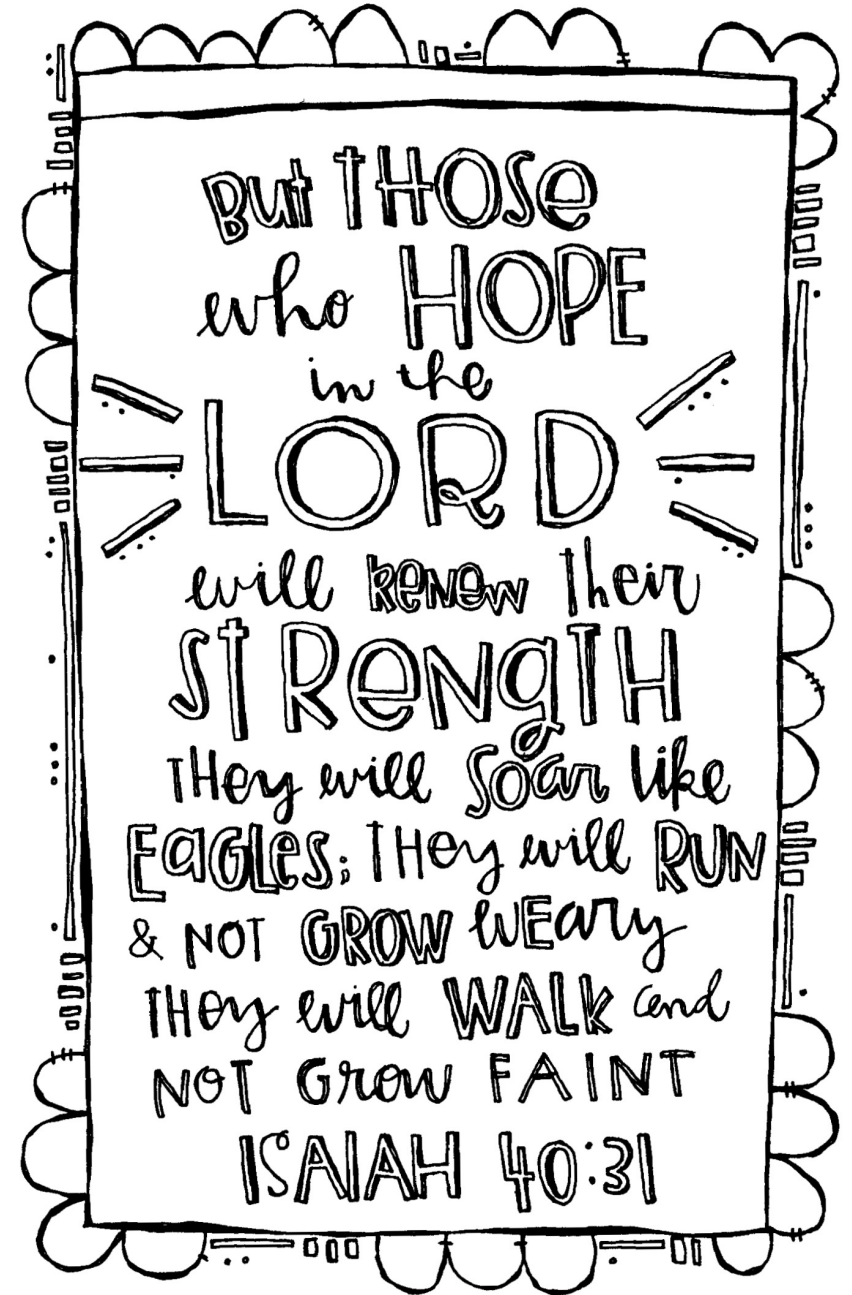 But THOSE
who HOPE
in the
LORD
will RENEW their
STRENGTH
THEY will SOAR like
EAGLES; THEY will RUN
& NOT GROW WEARY
THEY will WALK and
NOT GROW FAINT
ISAIAH 40:31